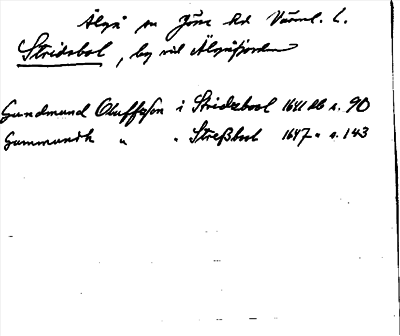 Älgå sn Jösse hd Värml. l.
Stridsbol, by vid Älgåfjorden
Gundmund Oluffzson i Stridzbool 1641 db s. 90
Gummundh " " Streßbol 1647 " s. 143